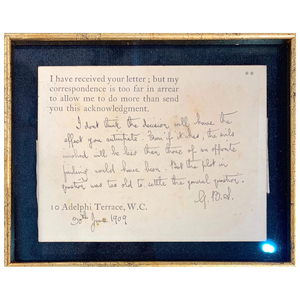 I have received your letter ; but my
correspondence is too far in arrear
to allow me to do more than send
you this acknowledgment.
I don't think the decision will have the
effect you anticipate. Even if it did, the evils
involved will be less than those of an opposite
finding would have been. But the plot in
question was too old to settle the general question.
G.B.S.
10 Adelphi Terrace, W.C.
30th June 1909